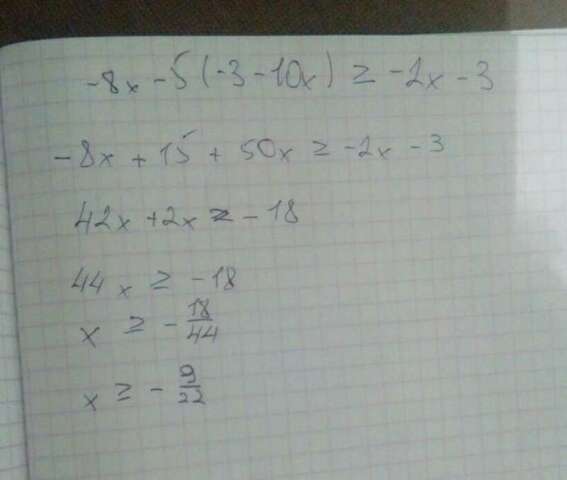 -8x -5(-3-10x) ≥ -2x -3
-8x + 15 + 50x ≥ -2x -3
42x +2x ≥ -18
44x ≥ -18
x ≥ - 18/44
x ≥ - 9/22